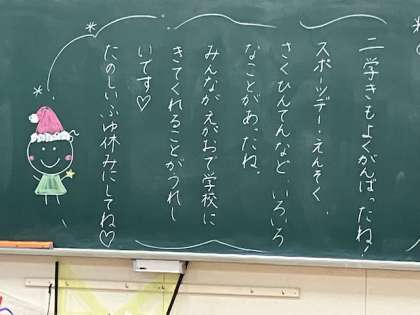 二学きもよくがんばったね!
スポーツデー・えんそく・
さくひんてんなど いろいろ
なことがあったね。
みんながえがおで学校に
きてくれることがうれし
いです♡
たのしいふゆ休みにしてね♡